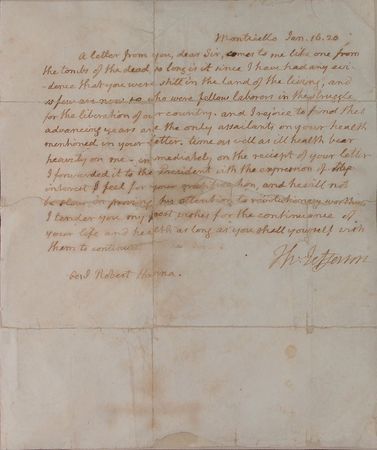 Monticello Jan. 16. 20
A letter from you, dear Sir, comes to me like one from
the tombs of the dead, so long is it since I have had any evi-
dence that you were still in the land of the living, and
so few are now so who were fellow laborers in the struggle
for the liberation of our country. and I rejoice to find that
advancing years are the only assailants on your health
mentioned in your letter. time as well as ill health bear
heavily on me. immediately on the reciept of your letter
I forwarded it to the President with the expression of the
interest I feel for your gratification, and he will not
be slow in proving his attention to revolutionary worthies
I tender you my best wishes for the continuance of
your life and health as long as you shall yourself wish
them to continue
Th: Jefferson
Genl. Robert Hanna.